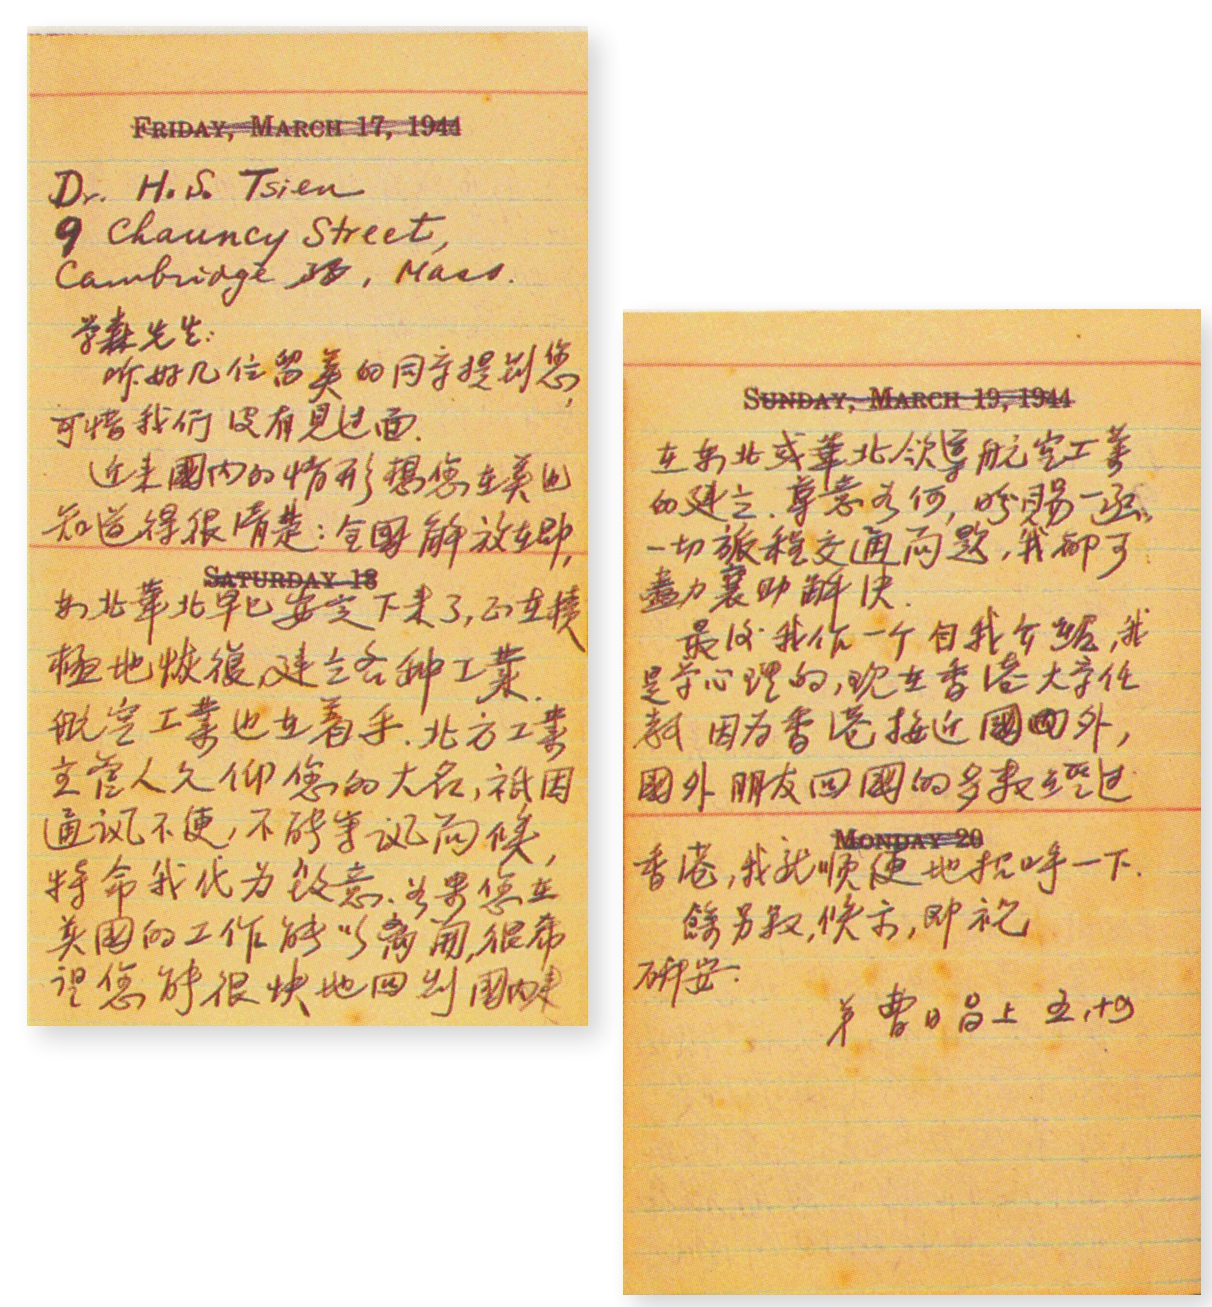 FRIDAY, MARCH 17, 1944
Dr. H. S. Tsien
9 Chauncy Street,
Cambridge 38, Mass.
学森先生:
听好几位留美的同学提到您,
可惜我们没有見过面.
近来國内的情形想您在美也
知道得很清楚:全國解放在即,
SATURDAY 18
东北華北早已安定下来了,正在積
極地恢復,建立各种工業.
航空工業也在着手.北方工業
主管人久仰您的大名,祇因
通訊不便,不能年訊问候,
特命我代为致意.如果您在
美國的工作能以离開,很希
望您能很快地回到國内来
SUNDAY, MARCH 19, 1944
在东北或華北領導航空工業
的建立.尊意如何,盼賜一函.
一切旅程交通问題,我都可
盡力襄助解決.
最後我作一个自我介紹,我
是学心理的,現在香港大学任
教 因为香港接近國内外,
國外朋友回國的多数經过
MONDAY 20
香港,我就順便地招呼一下.
餘另叙,候示,即祝
研安.
弟 曹日昌上 五,十四